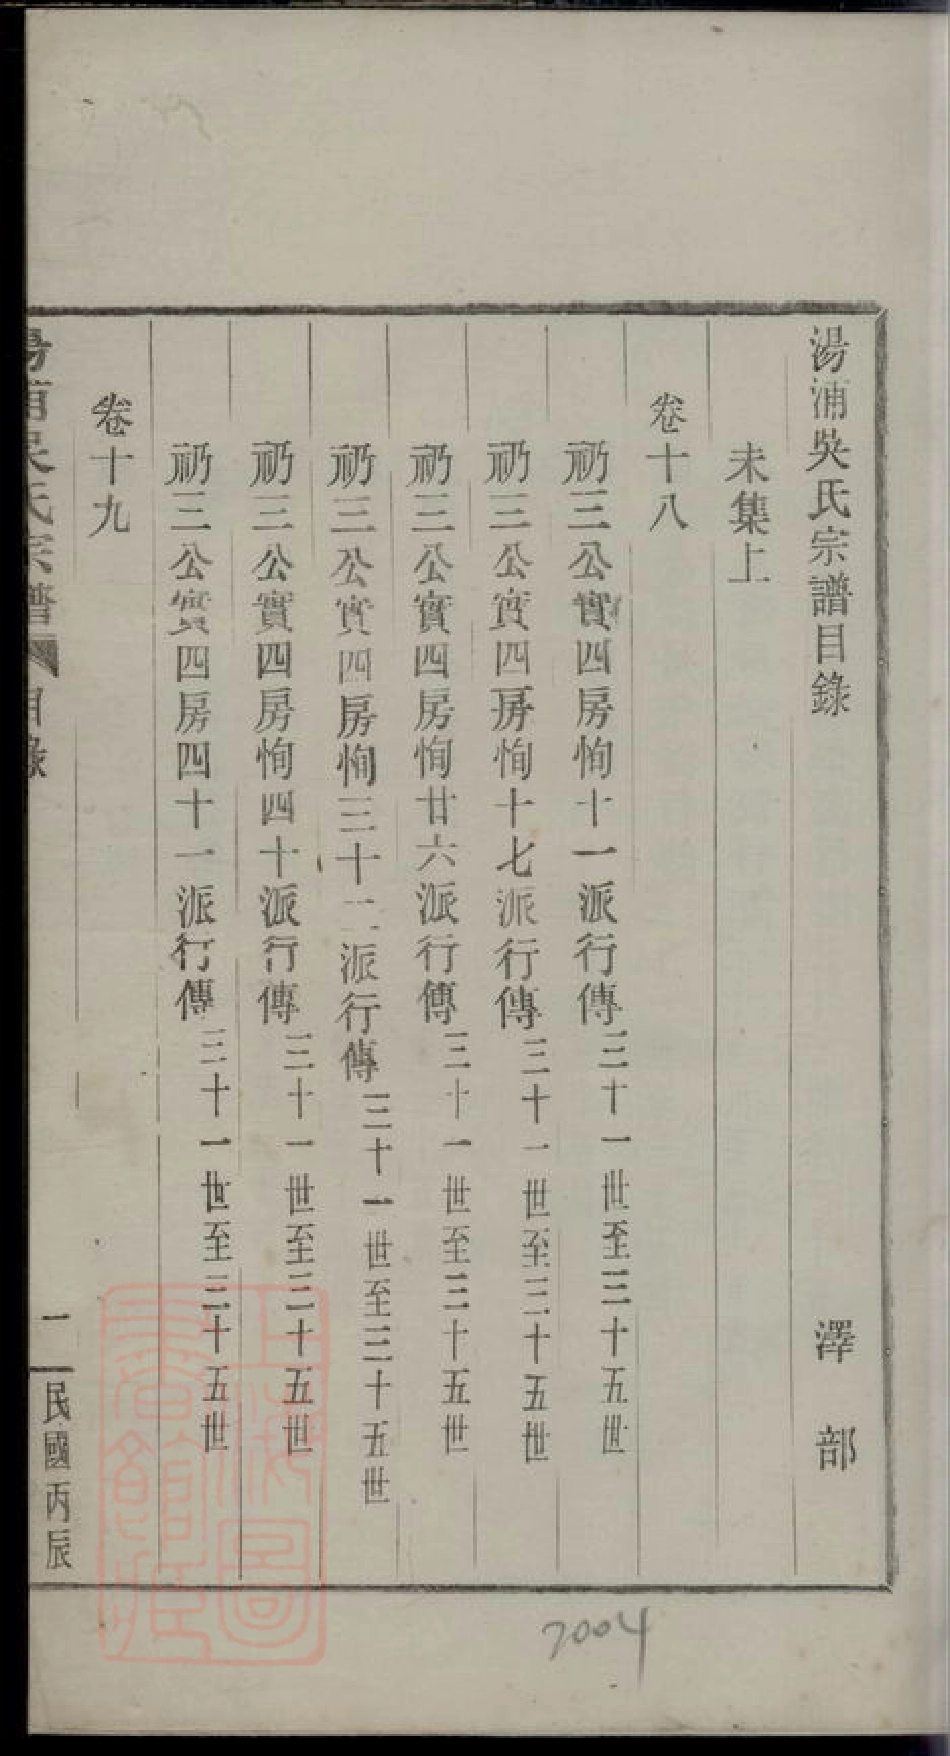 湯浦吳氏宗譜目錄 澤部
未集上
卷十八
礽三公實四房恂十一派行傳三十一世至三十五世
礽三公實四房恂十七派行傳三十一世至三十五世
礽三公實四房恂廿六派行傳三十一世至三十五世
礽三公實四房恂三十二派行傳三十一世至三十五世
礽三公實四房恂四十派行傳三十一世至三十五世
礽三公實四房四十一派行傳三十一世至三十五世
卷十九
湯浦吳氏宗譜 目錄 一 民國丙辰
上海圖書館藏
2004